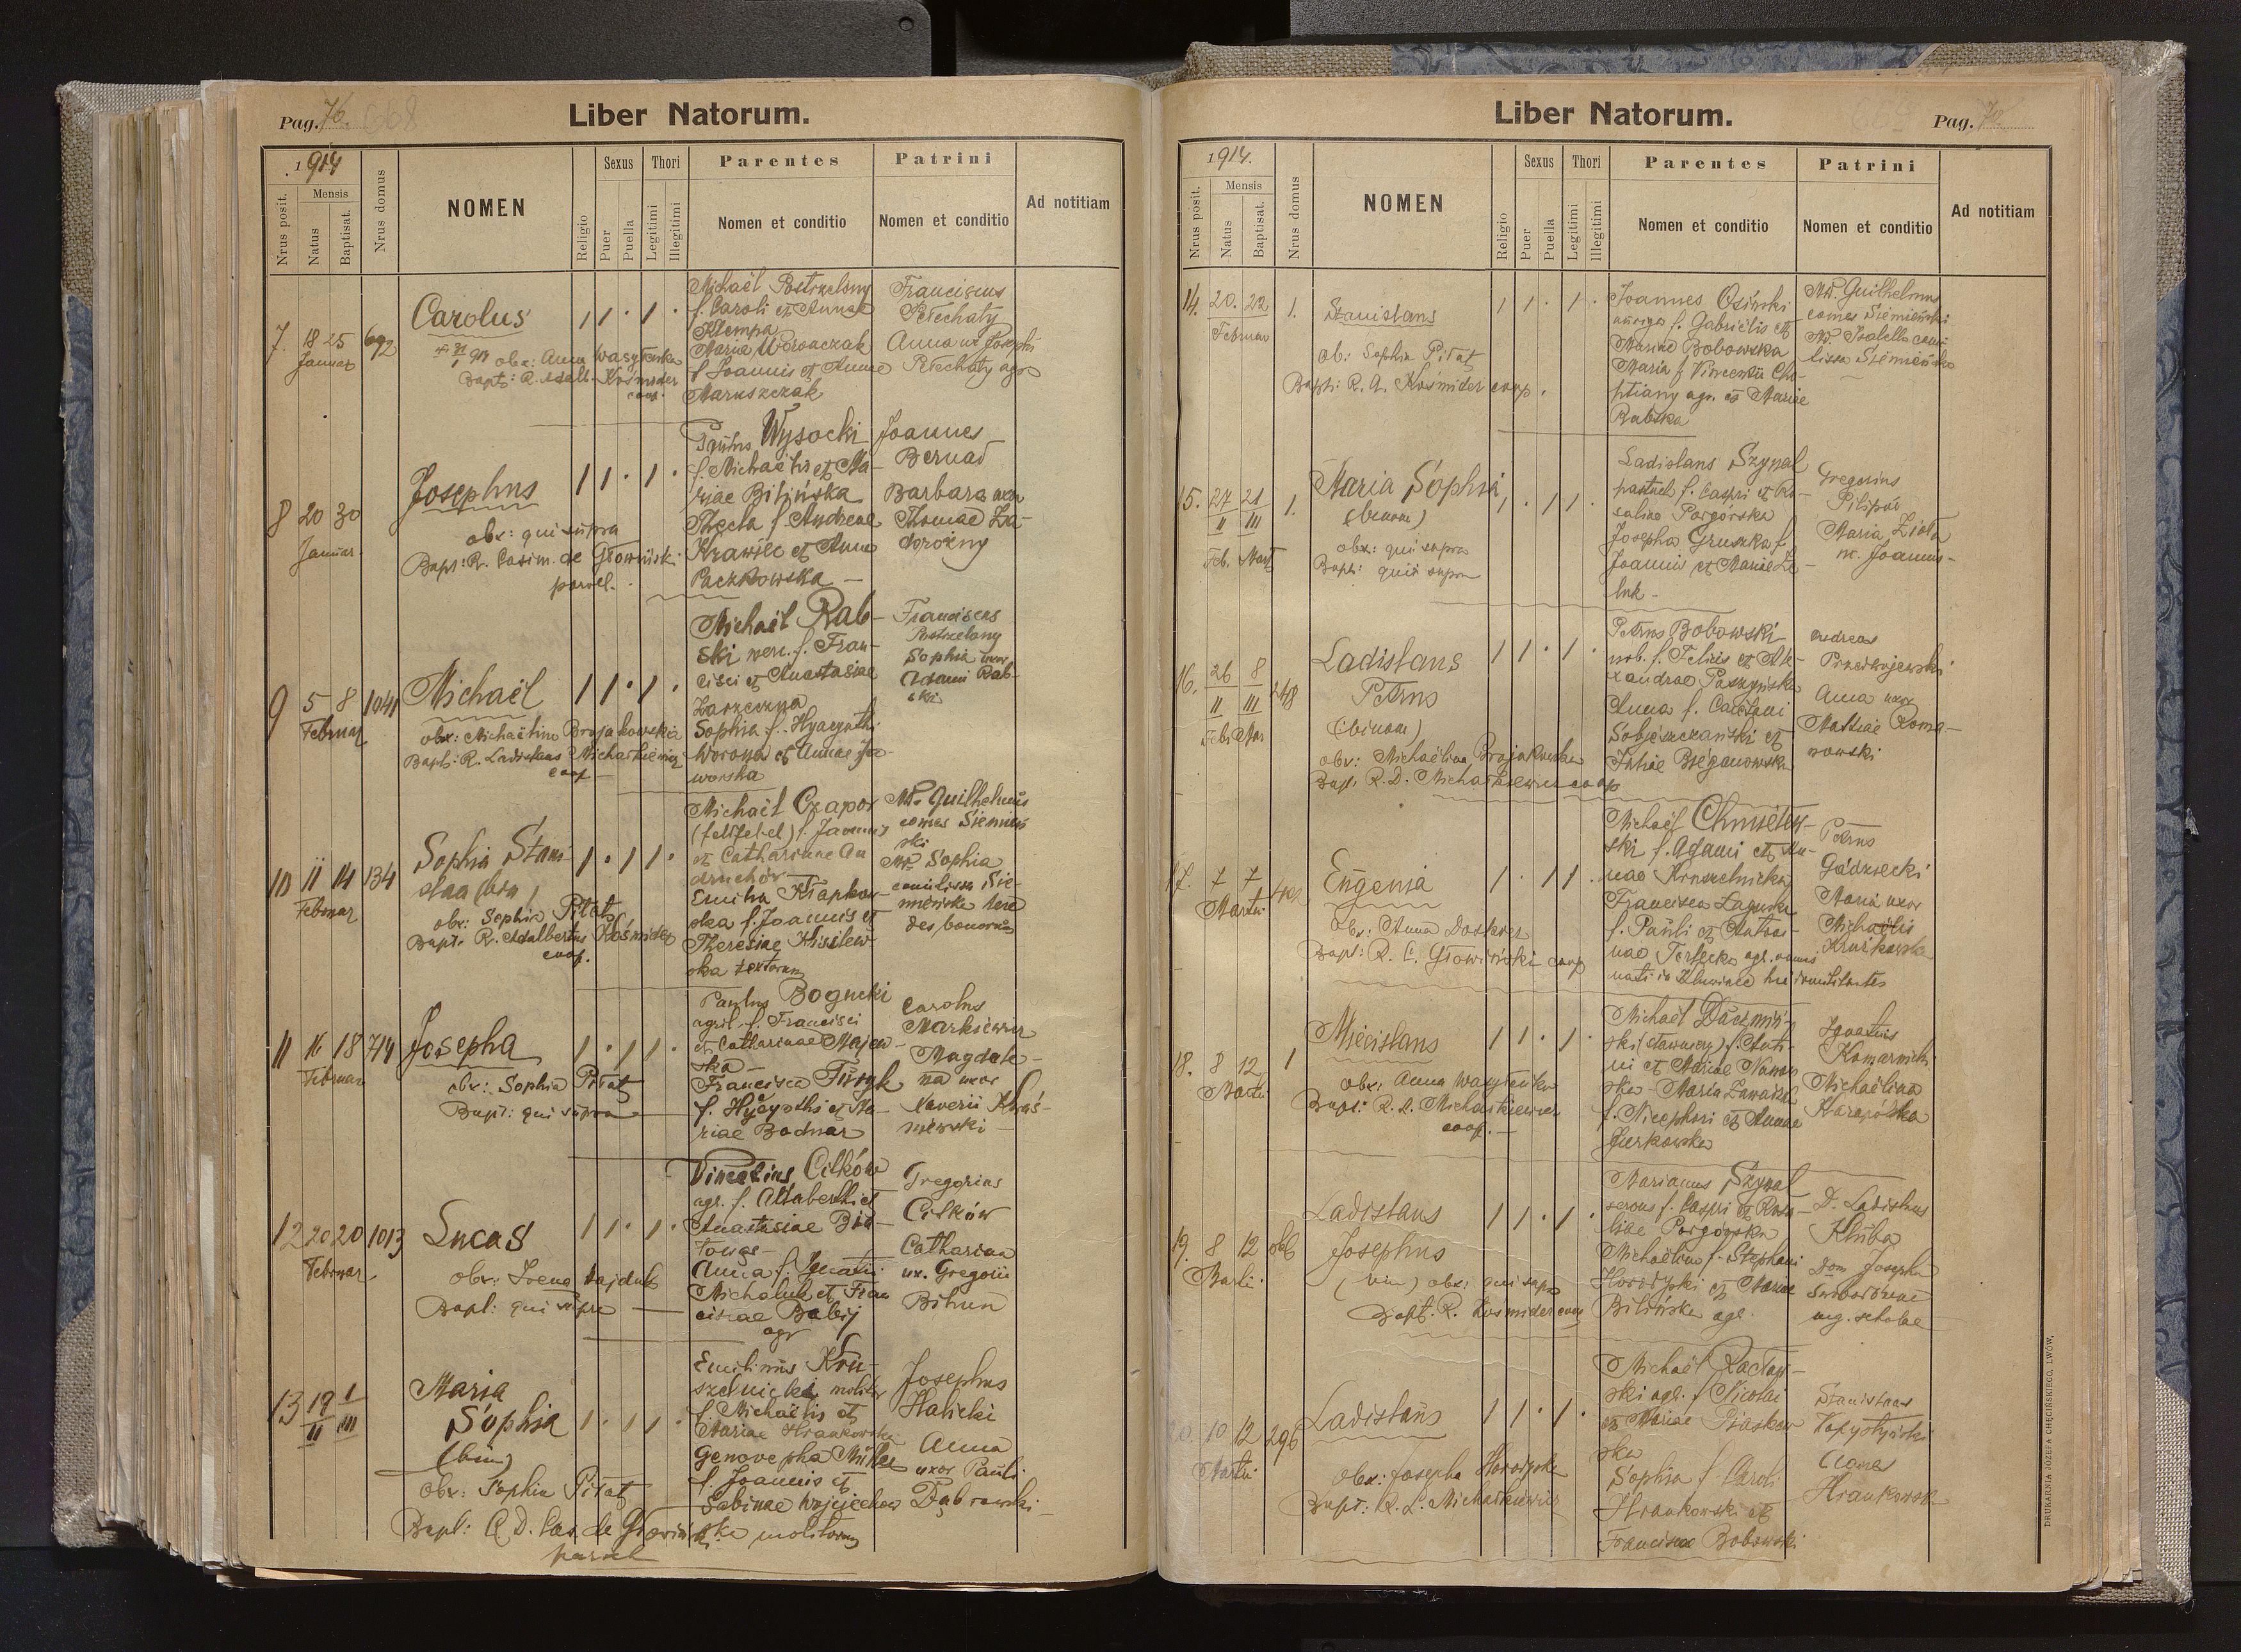 Pag. 76. 668
Liber Natorum.
1914
Nrus posit.
Mensis
Natus
Baptisat.
Nrus domus
NOMEN
Religio
Sexus
Puer
Puella
Thori
Legitimi
Illegitimi
Parentes
Nomen et conditio
Patrini
Nomen et conditio
Ad notitiam
7. 18 25 692
Januar
Carolus
obx: Anna Wasylenko
Bapt: R. Adalb. Kośmider
coop.
Michaël Postrzelony
f. Caroli et Annae
Klempa
Maria Woronczak
f. Joannis et Annae
Maruszczak
Franciscus
Petechaty
Anna ux Josephi
Petechaty agr
8 20 30
Januar
Josephus
obx: qui supra
Bapt: R. Casim. de Głowiński
paroch.
Paulus Wysocki
f. Michaëlis et Ma-
riae Bilińska
Thecla f. Andreae
Krawiec et Annae
Paczkowska –
Joannes
Bernad
Barbara uxor
Thomae Za-
dorożny
9 5 8 1041
Februar
Michaël
obx: Michaëlina Brojakowska
Bapt: R. Ladislaus Michałkiewicz
coop –
Michaël Rab-
ski merc. f. Fran-
cisci et Anastasiae
Zarzeczna
Sophia f. Hyacynthi
Worona et Annae Ja-
worska
Franciscus
Postrzelony
Sophia uxor
Adami Rab-
ski
10 11 14 134
Februar
Sophia Stani-
slaa (bin)
obx: Sophia Piłat
Bapt: R. Adalbertus Kośmider
coop.
Michaël Czapor
(feldfebel) f. Joannis
et Catharinae An
druchów
Emilia Kłapkow-
ska f. Joannis et
Theresiae Kisilew-
ska textorum
Md. Guilhelmus
comes Siemień
ski
Md Sophia
comitissa Sie-
mieńska here
des bonorum
11 16 18 714
Februar
Josepha
obx: Sophia Piłat
Bapt: qui supra
Paulus Bogucki
agril. f. Francisci
et Catharinae Majew-
ska –
Francisca
f. Hyacynthi et Ma-
riae Bodnar
Carolus
Markiewicz
Magdale-
na uxor
Xaverii Kwaś-
niewski –
12 20 20 1013
Februar.
Lucas
obx: Irena Hajduk
Bapt: qui supra
Vincentius Cilków
agr. f. Adalberti et
Anastasiae Bia-
łowąs –
Anna f. Ignatii
Michaluk et Fran
ciscae Babij
agr
Gregorius
Cilków
Catharina
ux. Gregorii
Bihun
13 19 1
II III
Maria
Sophia
(bin)
obx: Sophia Piłat
Bapt: R. D. Cas. de Głowiński
paroch
Emilianus Kru-
szelnicki molitor
f. Michaëlis et
Mariae Hrankowska
Genovepha Müller
f. Joannis et
Sabinae Wojciechow
ska molitorum
Josephus
Halicki
Anna
uxor Pauli
Dąbrowski –
Liber Natorum.
Pag. 77
1914.
Nrus posit.
Mensis
Natus
Baptisat.
Nrus domus
NOMEN
Religio
Sexus
Puer
Puella
Thori
Legitimi
Illegitimi
Parentes
Nomen et conditio
Patrini
Nomen et conditio
Ad notitiam
14. 20. 22 1.
Februar
Stanislaus
ob: Sophia Piłat
Bapt: R. A. Kośmider coop.
Joannes Osiński
auriga f. Gabriëlis et
Mariae Bobowska
Maria f. Vincentii Chy-
ptiany agr. et Mariae
Rabska
Md. Guilhelmus
comes Siemieński
Md. Isabella comi-
tissa Siemieńska
15. 27 21 1.
II III
Feb. Mart
Maria Sophia
(binom)
obx: qui supra
Bapt: qui supra
Ladislaus Szynal
f. Caspri et Ro-
saliae Porgórska
Josepha Gruszka f.
Joannis et Mariae
Gregorius
Pilipów
Maria Zioła
ux. Joannis –
16. 26 8 248
II III
Febr Mar
Ladislaus
Petrus
(binom)
obx: Michaëlina Brojakowska
Bapt. R. D. Michałkiewicz coop
Petrus Bobowski
nob. f. Felicis et Ale-
xandrae Paszyńska
Anna f. Cajetani
Sobieszczański et
Juliae Bieganowska
Andreas
Przedwojewski
Anna uxor
Mathiae Roma-
nowski
17. 7 7
Martii
Eugenia
obx: Anna Doskocz
Bapt: R. C. Głowiński coop
Michaël Chmieliń-
ski f. Adami et An-
nae Kruszelnicka
Francisca Zagurska
f. Pauli et Anton-
nae Terlecka agr. omnes
Petrus
Gődziecki
Maria uxor
Michaëlis
Kruśkowska
18. 8 12 1
Martii
Miecislaus
obx: Anna Wasylenko
Bapt: R. L. Michałkiewicz
coop. –
Michaël Daczmiń-
ski f. Anto-
nii et Mariae Nawro
ska – Maria Zawaska
f. Nicephori et Annae
Jurkowska
Ignatius
Komarnicki
Michaëlina
Karapólka
19. 8 12
Martii
Ladislaus
Josephus
(bin) obx: qui supra
Bapt: R. Kośmider coop
Marianus Szynal
f. Caspri et Rosa-
liae Porgórska
Michaëlina f. Stephani
Horodyski et Mariae
Bilińska agr.
D. Ladislaus
Kluba
Dom Josepha
mag. scholae
20. 10 12 296
Martii
Ladislaus
obx: Josepha Horodyska
Bapt: R. L. Michałkiewicz
Michaël Racław-
ski agr. f. Nicolai
et Mariae Piaskow
ska
Sophia f. Caroli
Hrankowski et
Franciscae Bobowski
Stanislaus
Kopystyński
Anna
Hrankowsk
DRUKARNIA JÓZEFA CHĘCIŃSKIEGO, LWÓW.